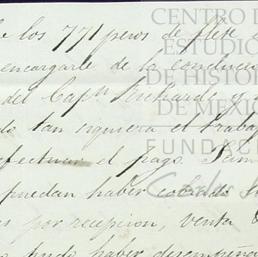 de los 771 pesos de flete
encargarle de la conducci
del Capn. Richards y
tan siquiera el traba
efectuar el pago.
puedan haber cobrado
por recepcion, venta
pudo haber desempeña
CENTRO DE
ESTUDIOS
DE HISTORIA
DE MEXICO
FUNDAC
Carlos